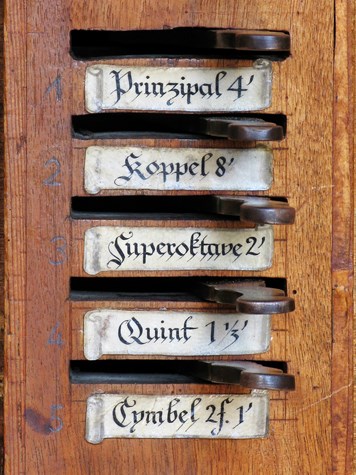 1
Prinzipal 4'
2
Koppel 8'
3
Superoktave 2'
4
Quint 1⅓'
5
Cymbel 2f. 1'